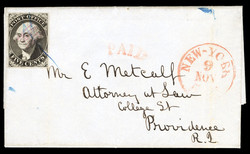 POST OFFICE
FIVE CENTS
PAID
NEW-YORK
9
NOV
Mr E Metcalf
Attorney at Law
College St
Providence
R.I